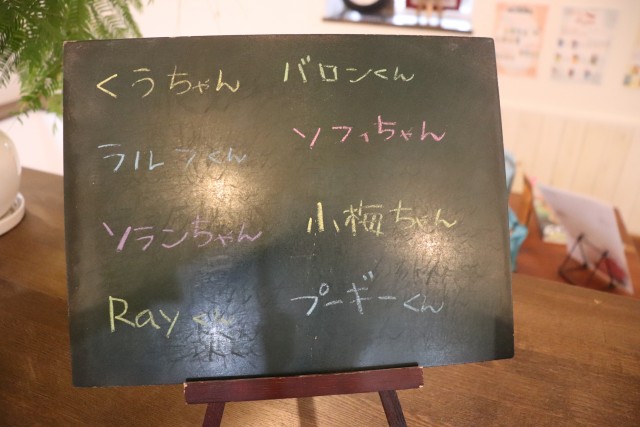 くうちゃん
バロンくん
ラルフくん
ソフィちゃん
ソランちゃん
小梅ちゃん
Rayくん
プーギーくん